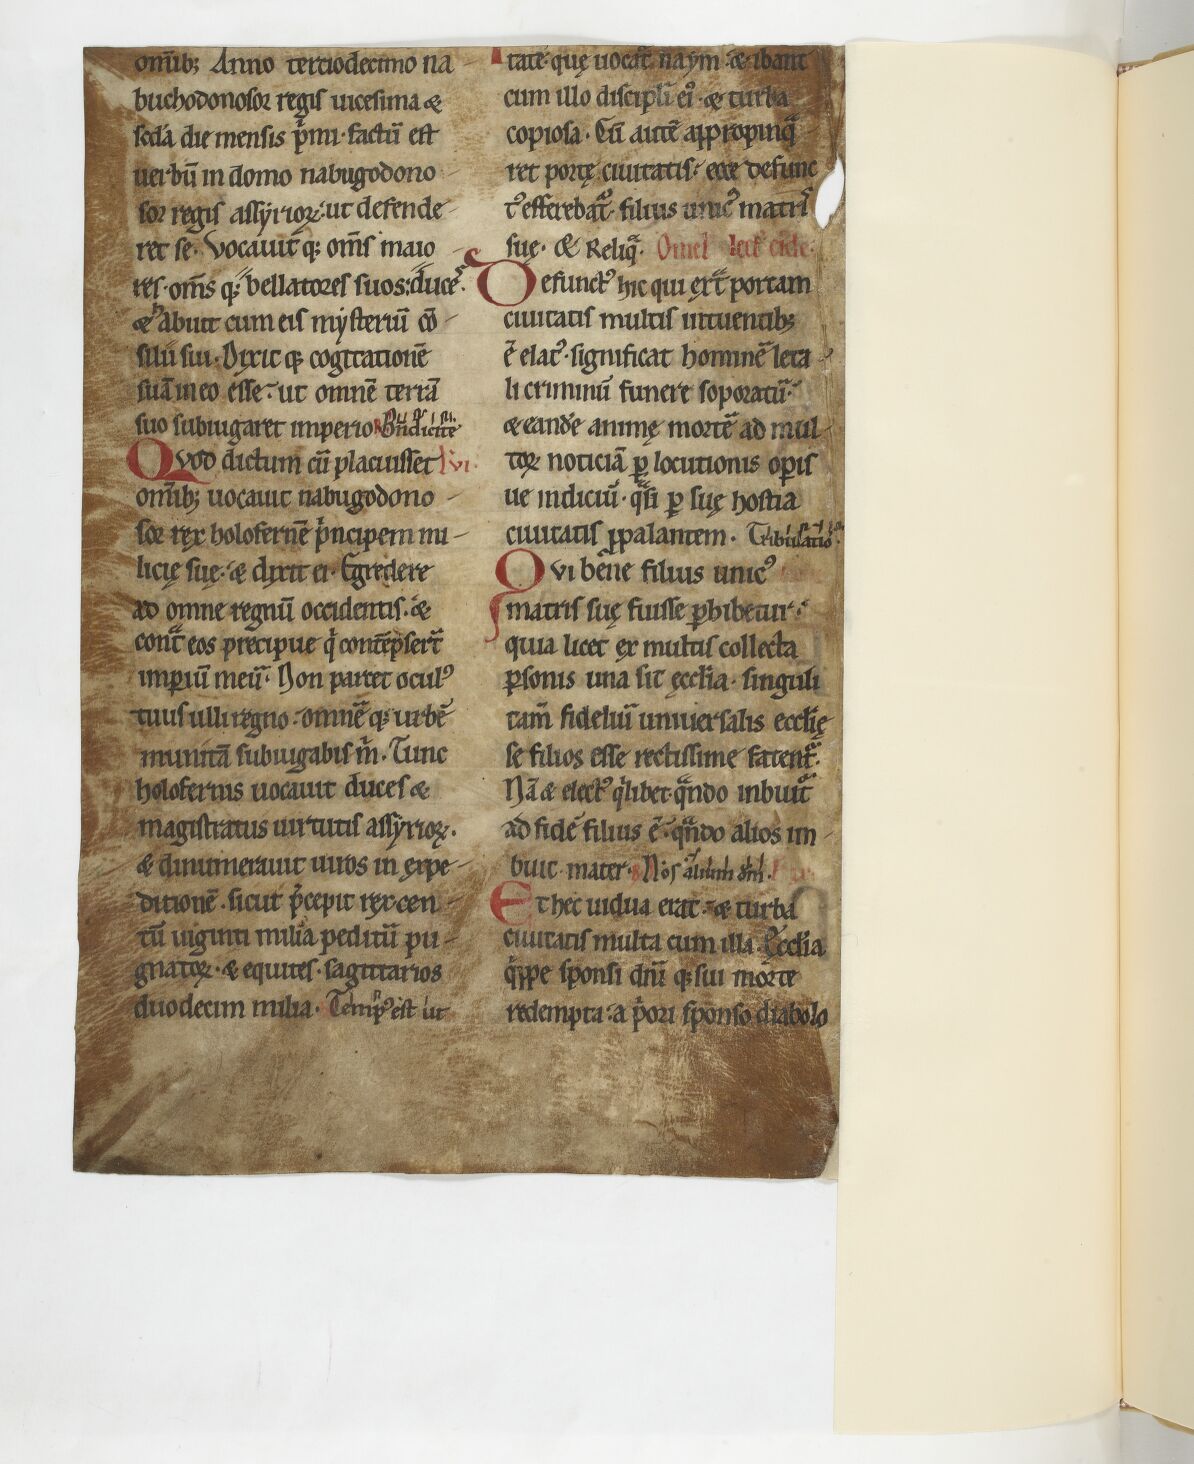 om̄ib; Anno terciodecimo na
buchodonosor regis uicesima &
scďa die mensis p̄mi · factū est
uerbū in domo nabugodono
sor regis assyrioꝝ: ut defende
ret se. Vocauit q; om̄s maio
res · om̄s q; bellatores suos: duces.
& habuit cum eis mysteriū cō
silii sui. Dixit q; cogitationē
suā in eo esse: ut omnē terrā
suo subiugaret imperio. R Bn̄dicite
Quod dictum cū placuisset L vi.
omib; uocauit nabugodono
sor rex holofernē p̄ncipem mi
licię suę: & dixit ei. Egredere
ad omne regnū occidentis: &
cont̄ eos precipue q̇ contēpsert̄
imperiū meū. Non parcet oculꝰ
tuus ulli regno: omnē q; urbē
munitā subiugabis m̄. Tunc
holofernis uocauit duces &
magistratus uirtutis assyrioꝝ.
& dinumerauit uiros in expe
ditionē · sicut p̄cepit rex: cen
tū uiginti milia peditū pu
gnatoꝝ · & equites · sagittarios
duodecim milia. Tempꝰ est ut
tatē quę uocat̄ naym: & ibant
cum illo discipl̄i eiꝰ & turba
copiosa. Cū autē appropinq̄
ret portę ciuitatis: ecce defunc
tꝰ efferebat̄ · filius unicꝰ matris
suę. & Reliq̄. Omel
Defunctꝰ hic qui ext̄ portam
ciuitatis multis intuentib;
ē elatꝰ · significat hominē leta
li criminū funere soporatū:
& eandē animę mortē ad mul
toꝝ noticiā ꝑ locutionis op̄is
ue indiciū · q̄si ꝑ suę hostia
ciuitatis ꝓpalantem. Tribulatio
Qui bene filius unicꝰ
matris suę fuisse ꝑhibetur:
quia licet ex multis collecta
ꝑsonis una sit ęccl̄ia · singuli
tam̄ fideliū uniuersalis eccl̄ię
se filios esse rectissime fatent̄.
Nā & electꝰ q̇libet q̄ndo inbuit̄
ad fidē filius ē · q̄ndo alios im
buit mater. Nos alium dm̄.
Et hec uidua erat: & turba
ciuitatis multa cum illa. Eccl̄ia
q̇ppe sponsi dn̄i q; sui morte
redempta: a p̄ori sponso diabolo